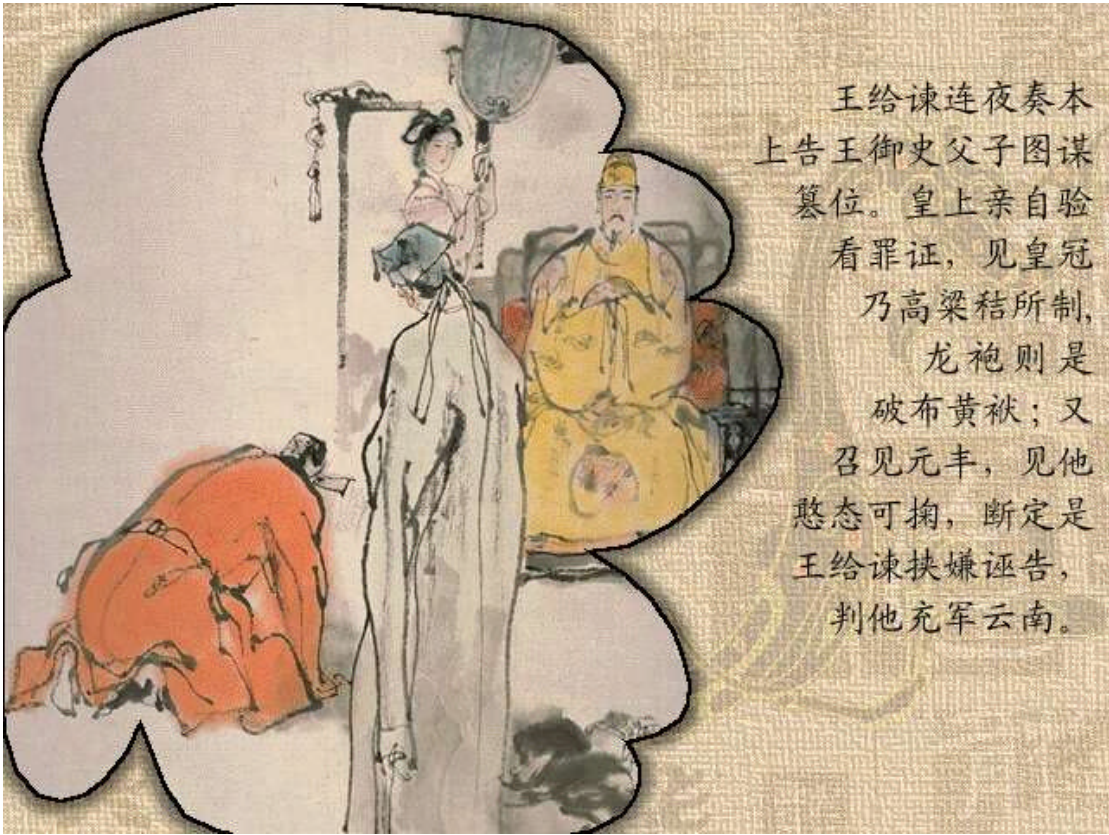 王给谏连夜奏本
上告王御史父子图谋
篡位。皇上亲自验
看罪证，见皇冠
乃高梁秸所制，
龙袍则是
破布黄袱；又
召见元丰，见他
憨态可掬，断定是
王给谏挟嫌诬告，
判他充军云南。